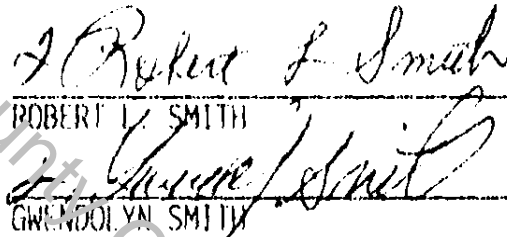 x Robert L Smith
ROBERT L. SMITH
Smith
GWENDOLYN SMITH